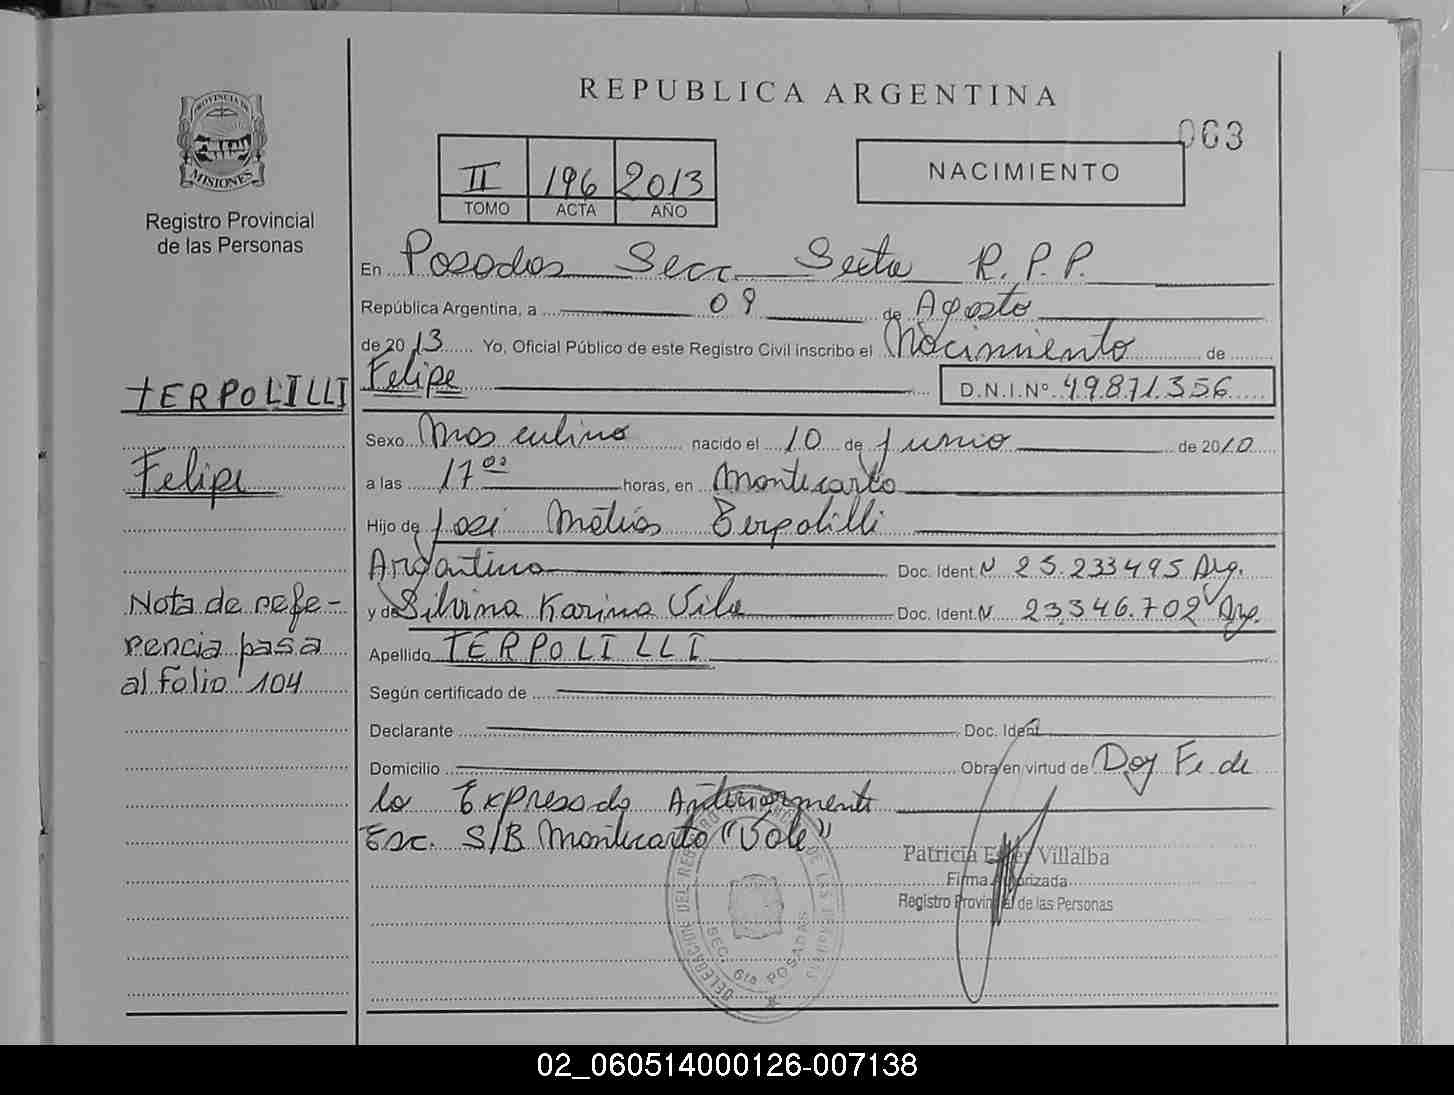 REPUBLICA ARGENTINA
063
PROVINCIA DE
MISIONES
Registro Provincial
de las Personas
II 196 2013
TOMO ACTA AÑO
NACIMIENTO
En Posadas Secc. Sexta R.P.P.
República Argentina, a 09 de Agosto
de 2013 Yo, Oficial Público de este Registro Civil inscribo el Nacimiento de
Felipe D.N.I.Nº 49871356
TERPOLILLI
Felipe
Sexo Masculino nacido el 10 de Junio de 2010
a las 17⁰⁰ horas, en Montecarlo
Hijo de José Matías Terpolilli
Argentino Doc. Ident. N 25.233495 Arg.
y de Silvina Karina Vile Doc. Ident. N 23.346.702 Arg.
Apellido TERPOLILLI
Nota de refe-
rencia pasa
al folio 104
Según certificado de
Declarante Doc. Ident.
Domicilio Obra en virtud de Doy Fe de
lo Expresado Anteriormente
Esc. S/B Montecarlo "Vale"
Patricia Ester Villalba
Firma Autorizada
Registro Provincial de las Personas
SEC. 6ta POSADAS
02_060514000126-007138